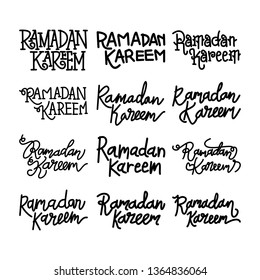 RAMADAN RAMADAN Ramadan
KAREEM KAREEM Kareem
RAMADAN Ramadan Ramadan
KAREEM Kareem Kareem
Ramadan Ramadan Ramadan
Kareem Kareem Kareem
Ramadan Ramadan Ramadan
Kareem Kareem Kareem
shutterstock.com · 1364836064